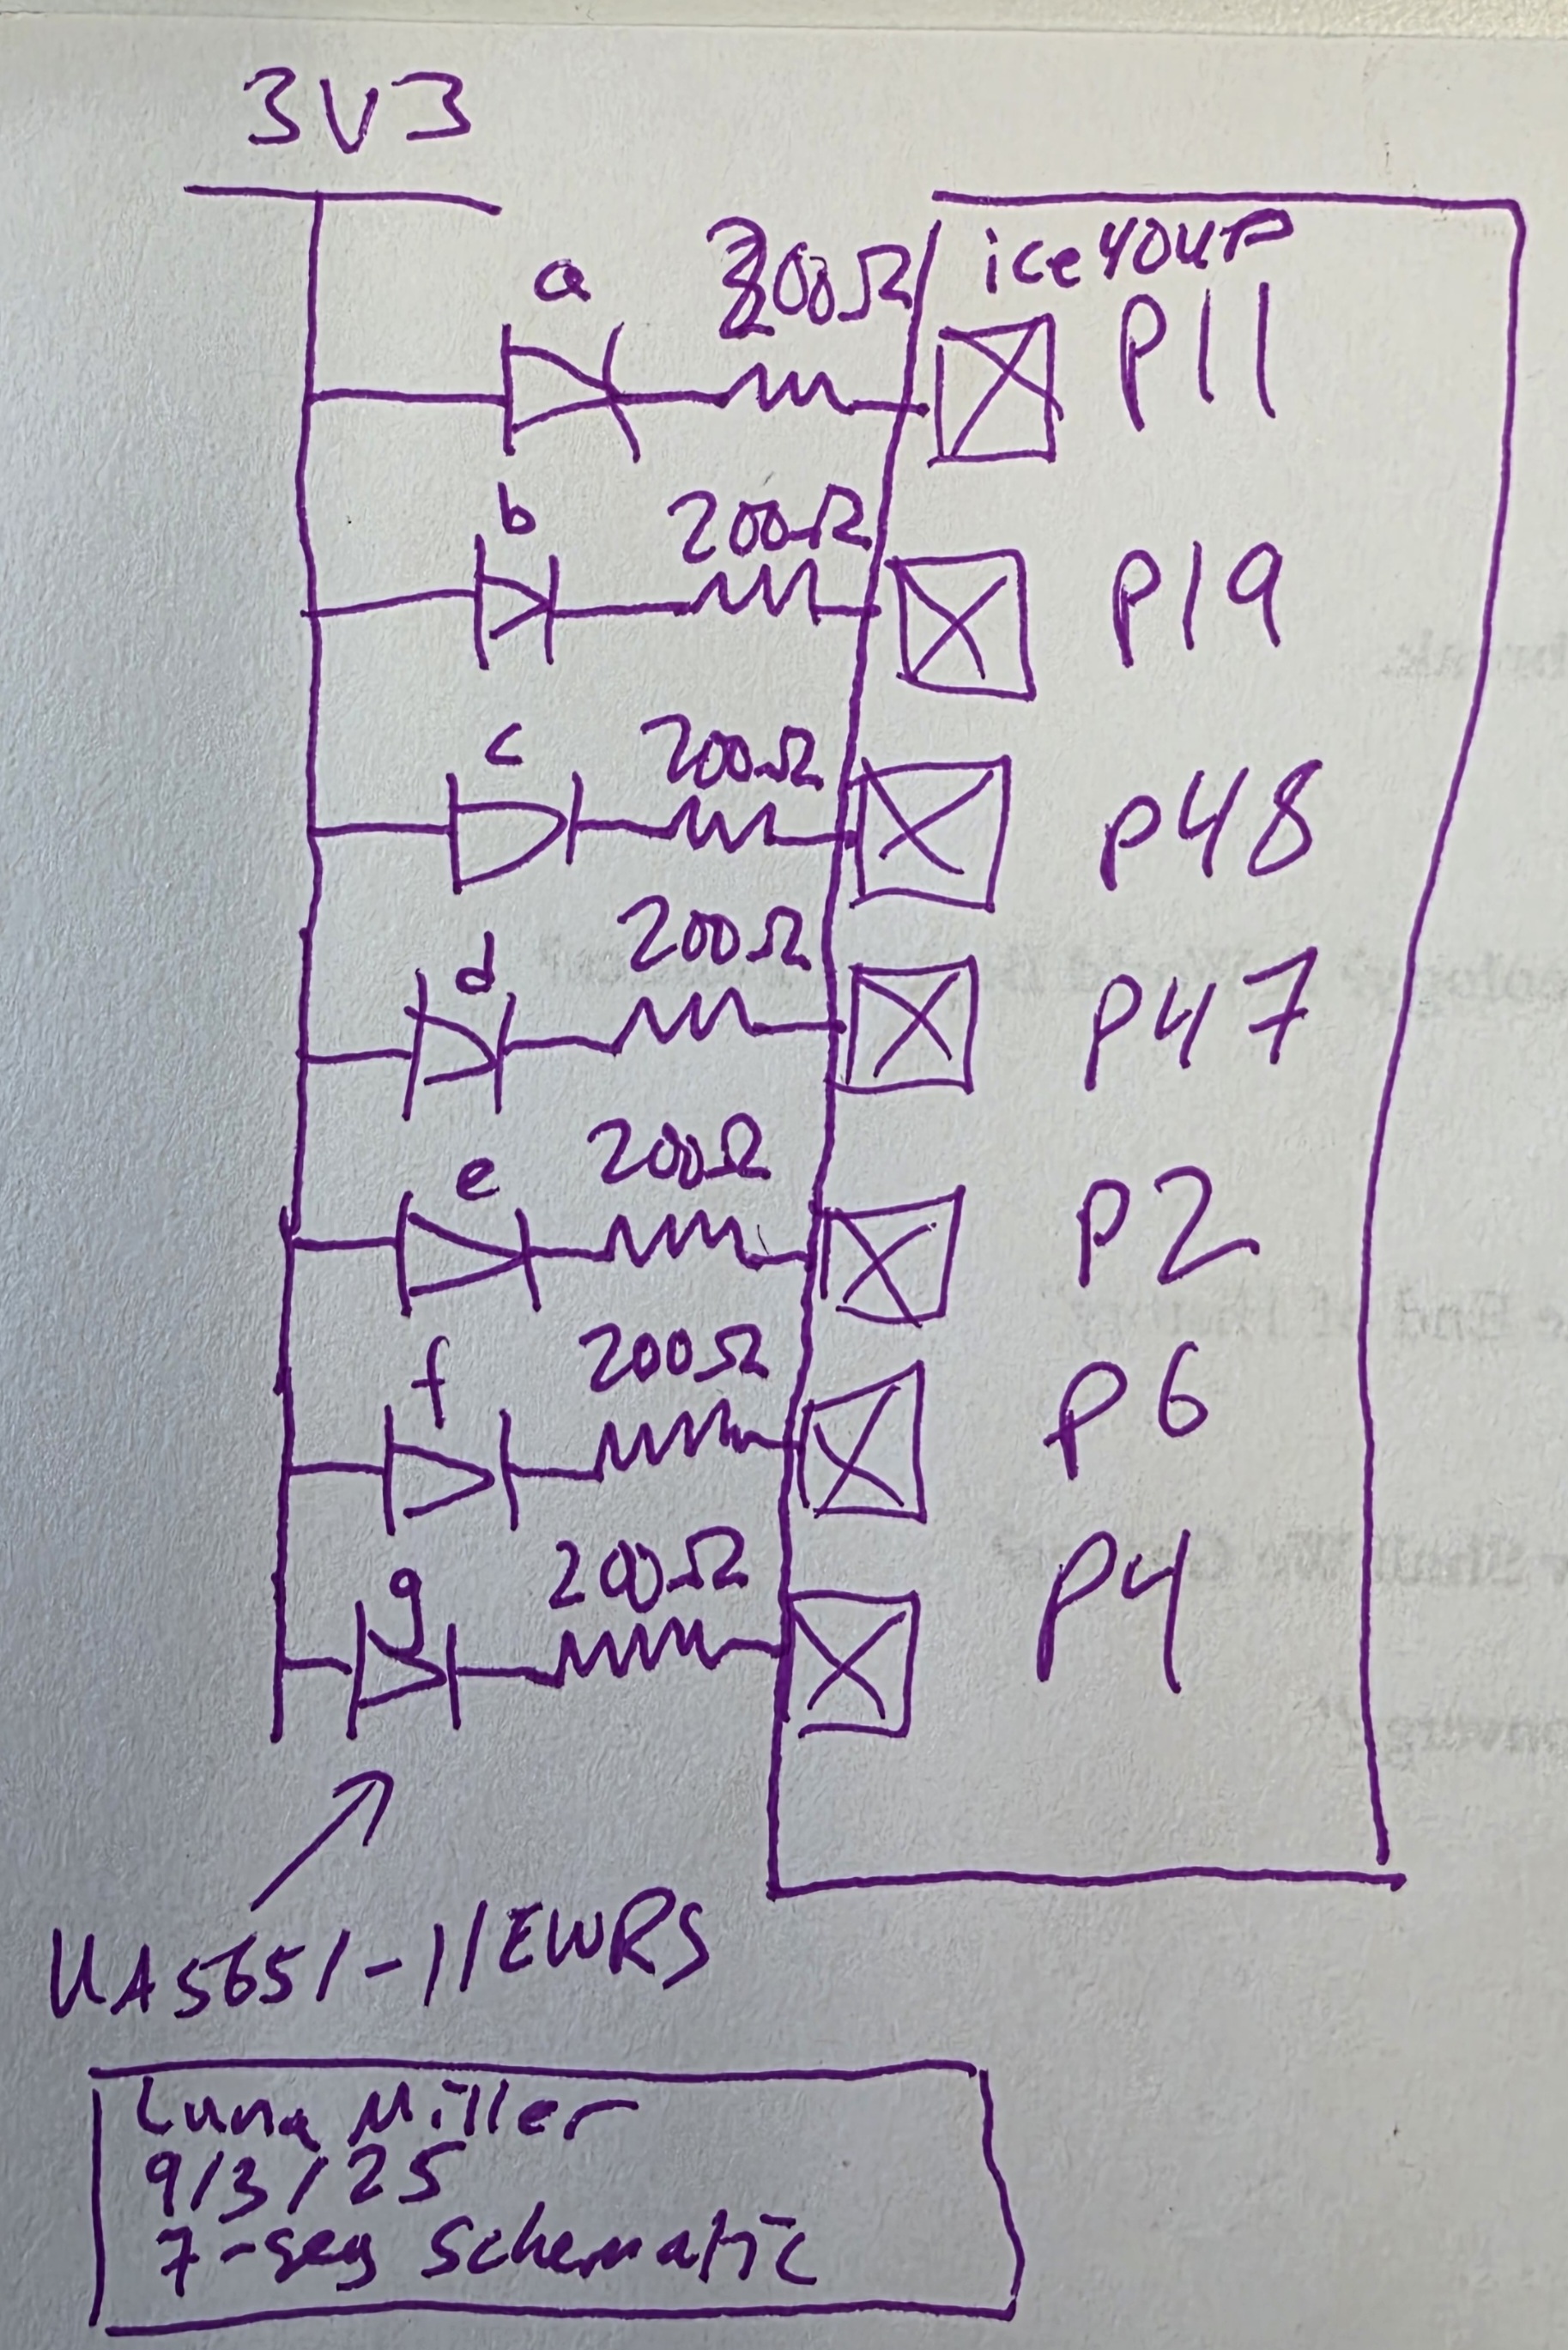 3V3
ice40UP
a 200Ω P11
b 200Ω P19
c 200Ω P48
d 200Ω P47
e 200Ω P2
f 200Ω P6
g 200Ω P4
UA5651-11EWRS
Luna Miller
9/3/25
7-seg Schematic